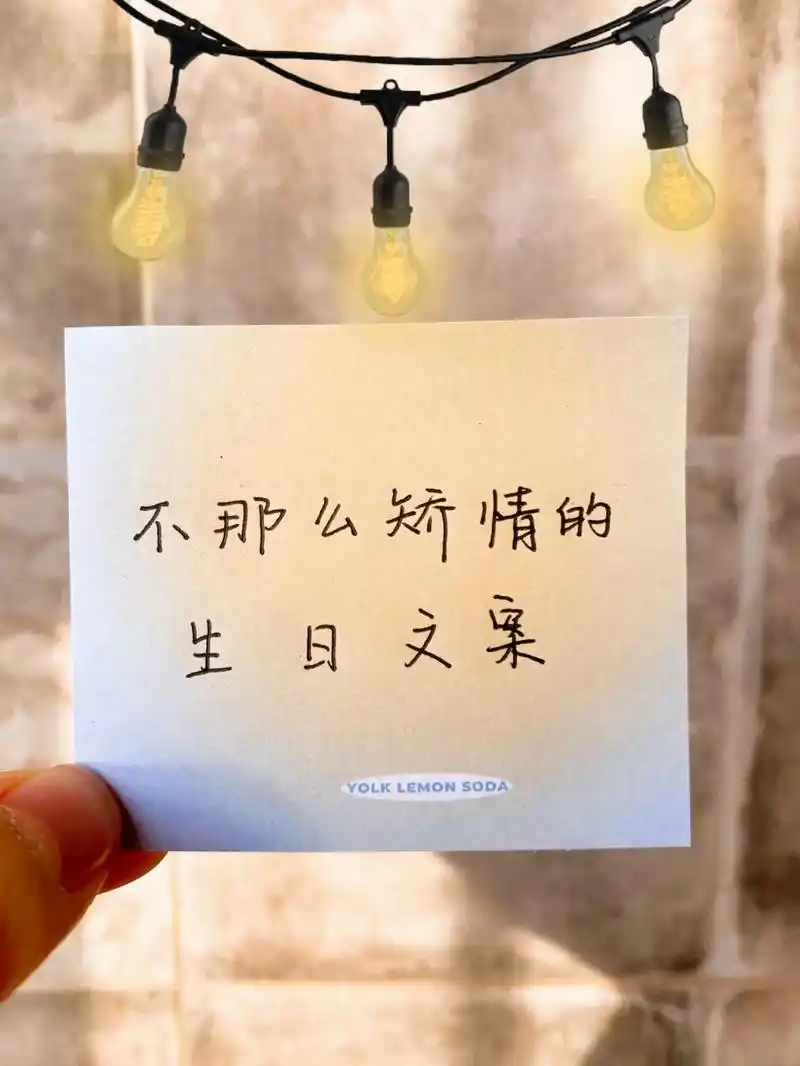 不那么矫情的
生日文案
YOLK LEMON SODA